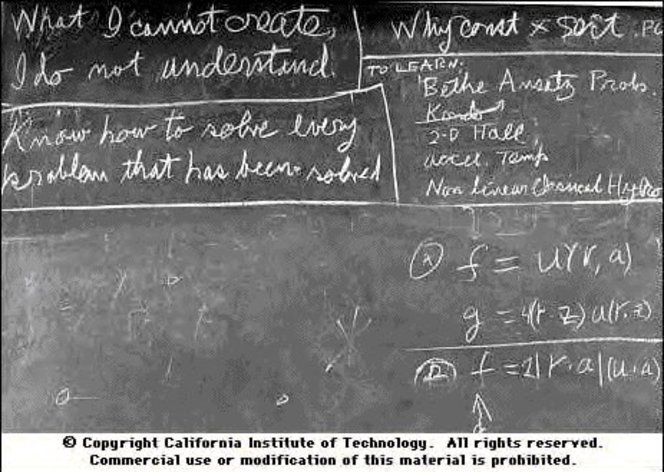 What I cannot create,
I do not understand.
Know how to solve every
problem that has been solved
Why const × sort . PO
TO LEARN:
Bethe Ansatz Probs.
Kondo
2-D Hall
accel. Temp
Non linear Classical Hydro
A f = u(r, a)
g = 4(r·z) u(r, z)
f = 2|r·a|(u·a)
© Copyright California Institute of Technology. All rights reserved.
Commercial use or modification of this material is prohibited.